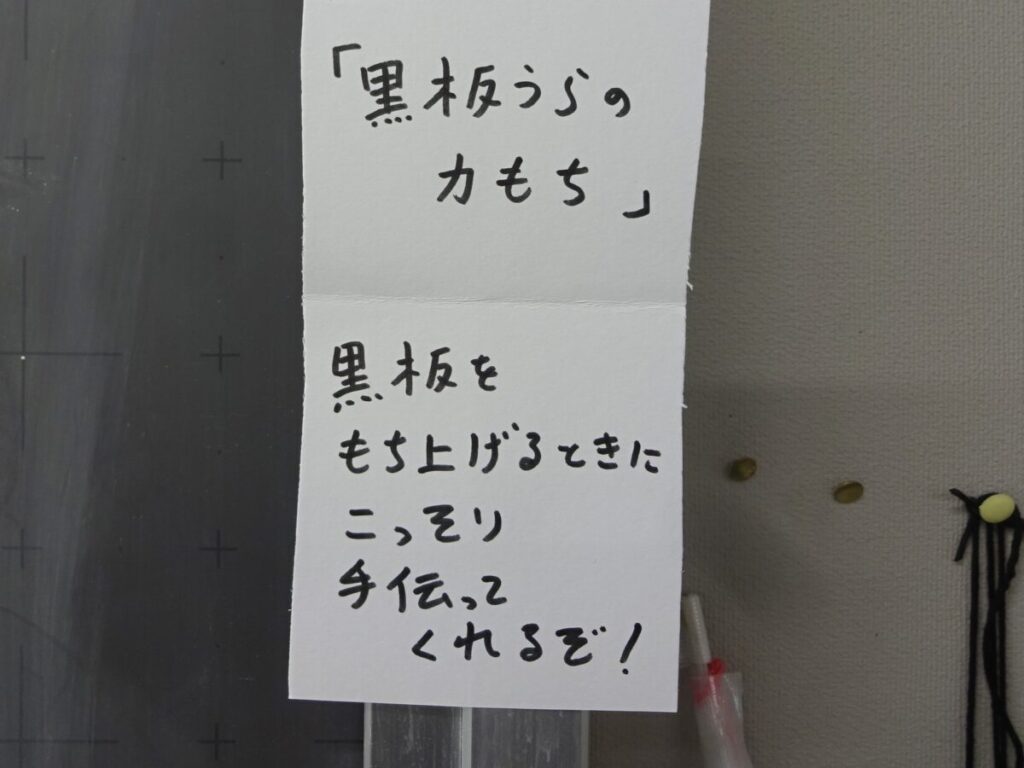 「黒板うらの
力もち」
黒板を
もち上げるときに
こっそり
手伝って
くれるぞ！